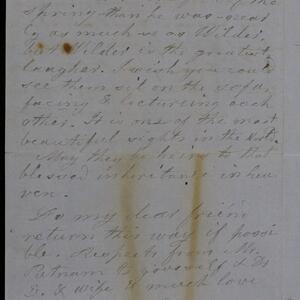 spring than he was nearly
ly as much so as Wilder,
but Wilder is the greatest
laugher. I wish you could
see them sit on the sofa,
facing & lecturing each
other. It is one of the most
beautiful sights in the
May they be heirs to that
blessed inheritance in hea-
ven.
Do my dear friend
return this way if possi-
ble. Respects from Mr.
Putnam & yourself & Dr
& wife & much love